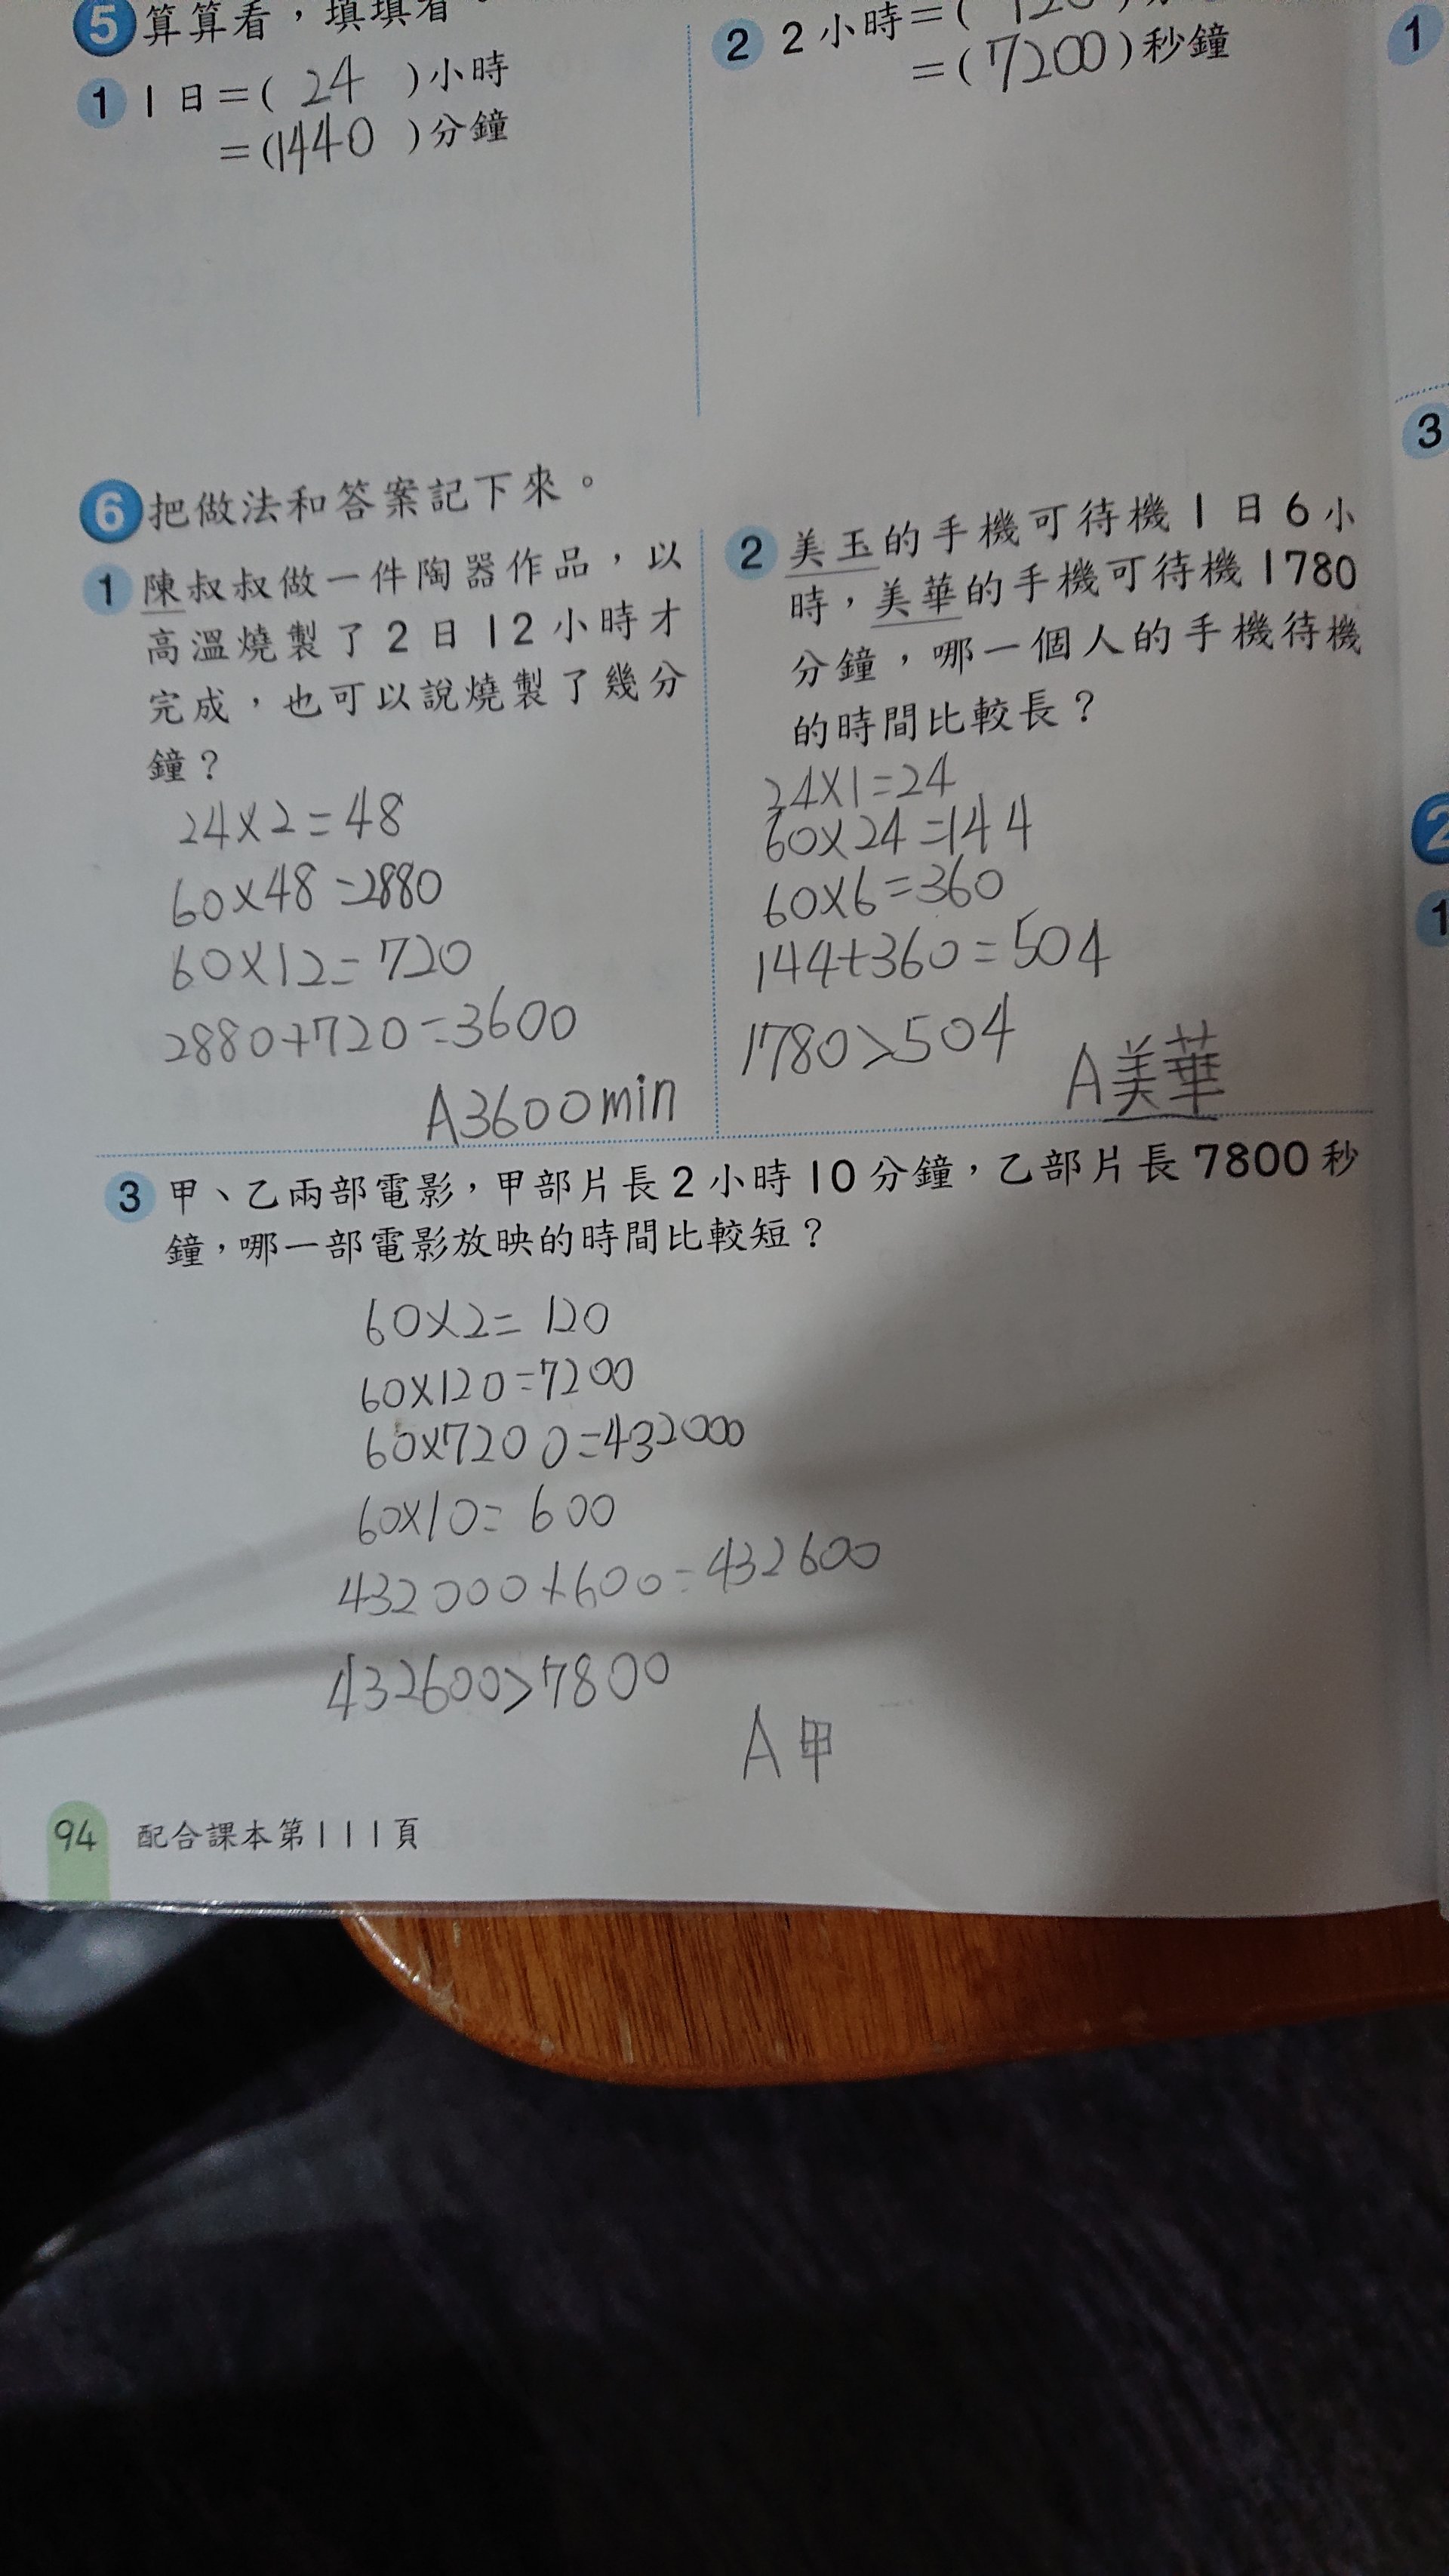 5 算算看，填填看。
1 1日＝( 24 )小時
＝(1440 )分鐘
2 2小時＝( 120
＝(7200)秒鐘
6 把做法和答案記下來。
1 陳叔叔做一件陶器作品，以
高溫燒製了2日12小時才
完成，也可以說燒製了幾分
鐘？
24×2=48
60×48=2880
60×12=720
2880+720=3600
A3600min
2 美玉的手機可待機1日6小
時，美華的手機可待機1780
分鐘，哪一個人的手機待機
的時間比較長？
24×1=24
60×24=144
60×6=360
144+360=504
1780>504
A美華
3 甲、乙兩部電影，甲部片長2小時10分鐘，乙部片長7800秒
鐘，哪一部電影放映的時間比較短？
60×2=120
60×120=7200
60×7200=432000
60×10=600
432000+600=432600
432600>7800
A甲
94 配合課本第111頁
1
3
2
1